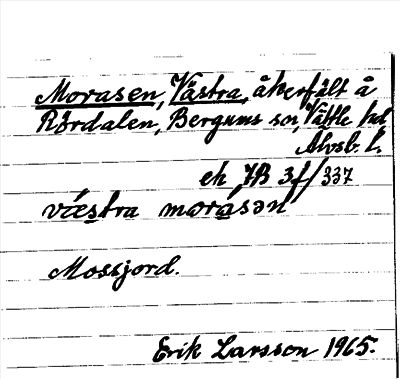 Morasen, Västra, åkerfält å
Rördalen, Bergums sn, Vättle hd
Älvsb. l.
ek, JB 3f/337
västra moràsən
Mossjord.
Erik Larsson 1965.